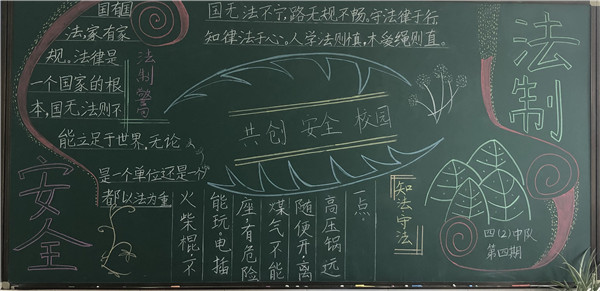 国有国
法,家有家
规。法律是
一个国家的根
本,国无法则不
能立足于世界,无论
是一个单位还是个
都以法为重
法制警
安全
国无法不宁,路无规不畅。守法律于行
知律法于心。人学法则慎,木受绳则直。
共创 安全 校园
火柴棍·不
能玩·电插
座有危险
煤气不能
随便开·离
高压锅远
一点
知法守法
法制
四(2)中队
第四期